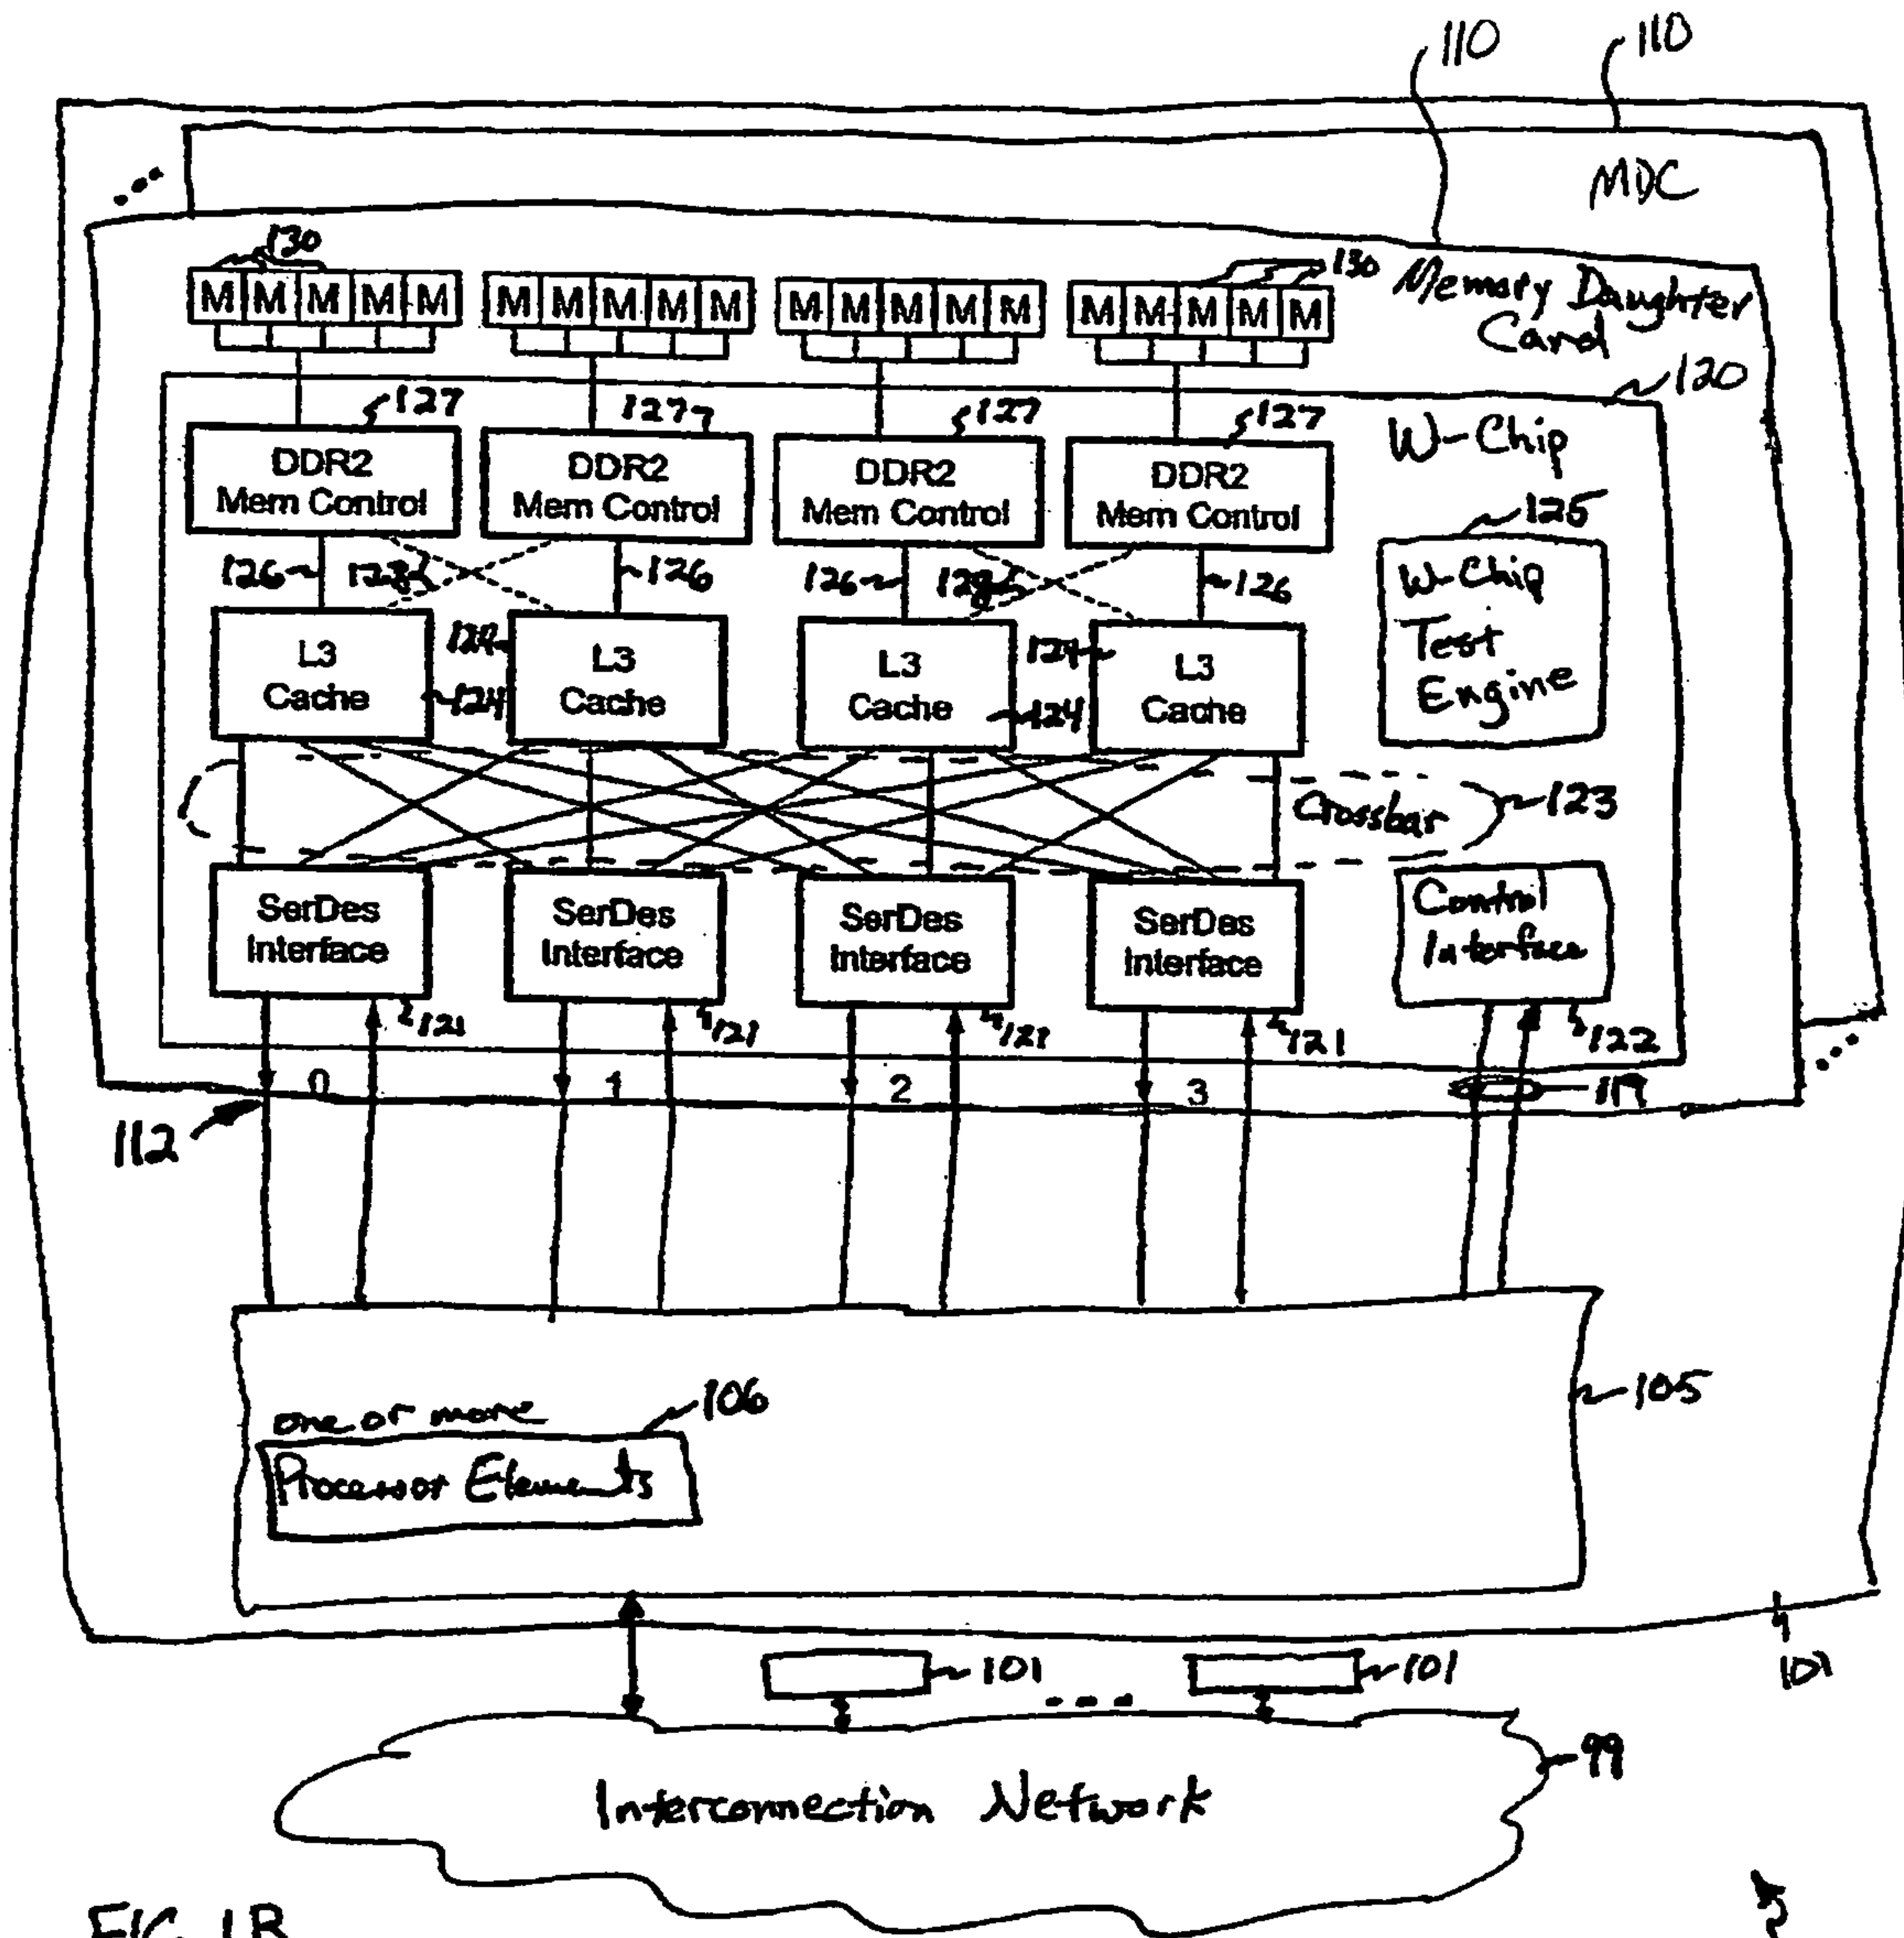 110 110
MDC
130
M M M M M M M M M M M M M M M M M M M M
130 Memory Daughter
Card
120
127 127 127 127
W-Chip
DDR2
Mem Control
DDR2
Mem Control
DDR2
Mem Control
DDR2
Mem Control
125
126 128 126 126 128 126
W-Chip
Test
Engine
L3
Cache
124
124
L3
Cache
L3
Cache
124
124
L3
Cache
Crossbar 123
SerDes
Interface
SerDes
Interface
SerDes
Interface
SerDes
Interface
Control
Interface
121 121 121 121 122
0 1 2 3 119
112
105
one or more 106
Processor Elements
101 101 101
99
Interconnection Network
FIG. 1B